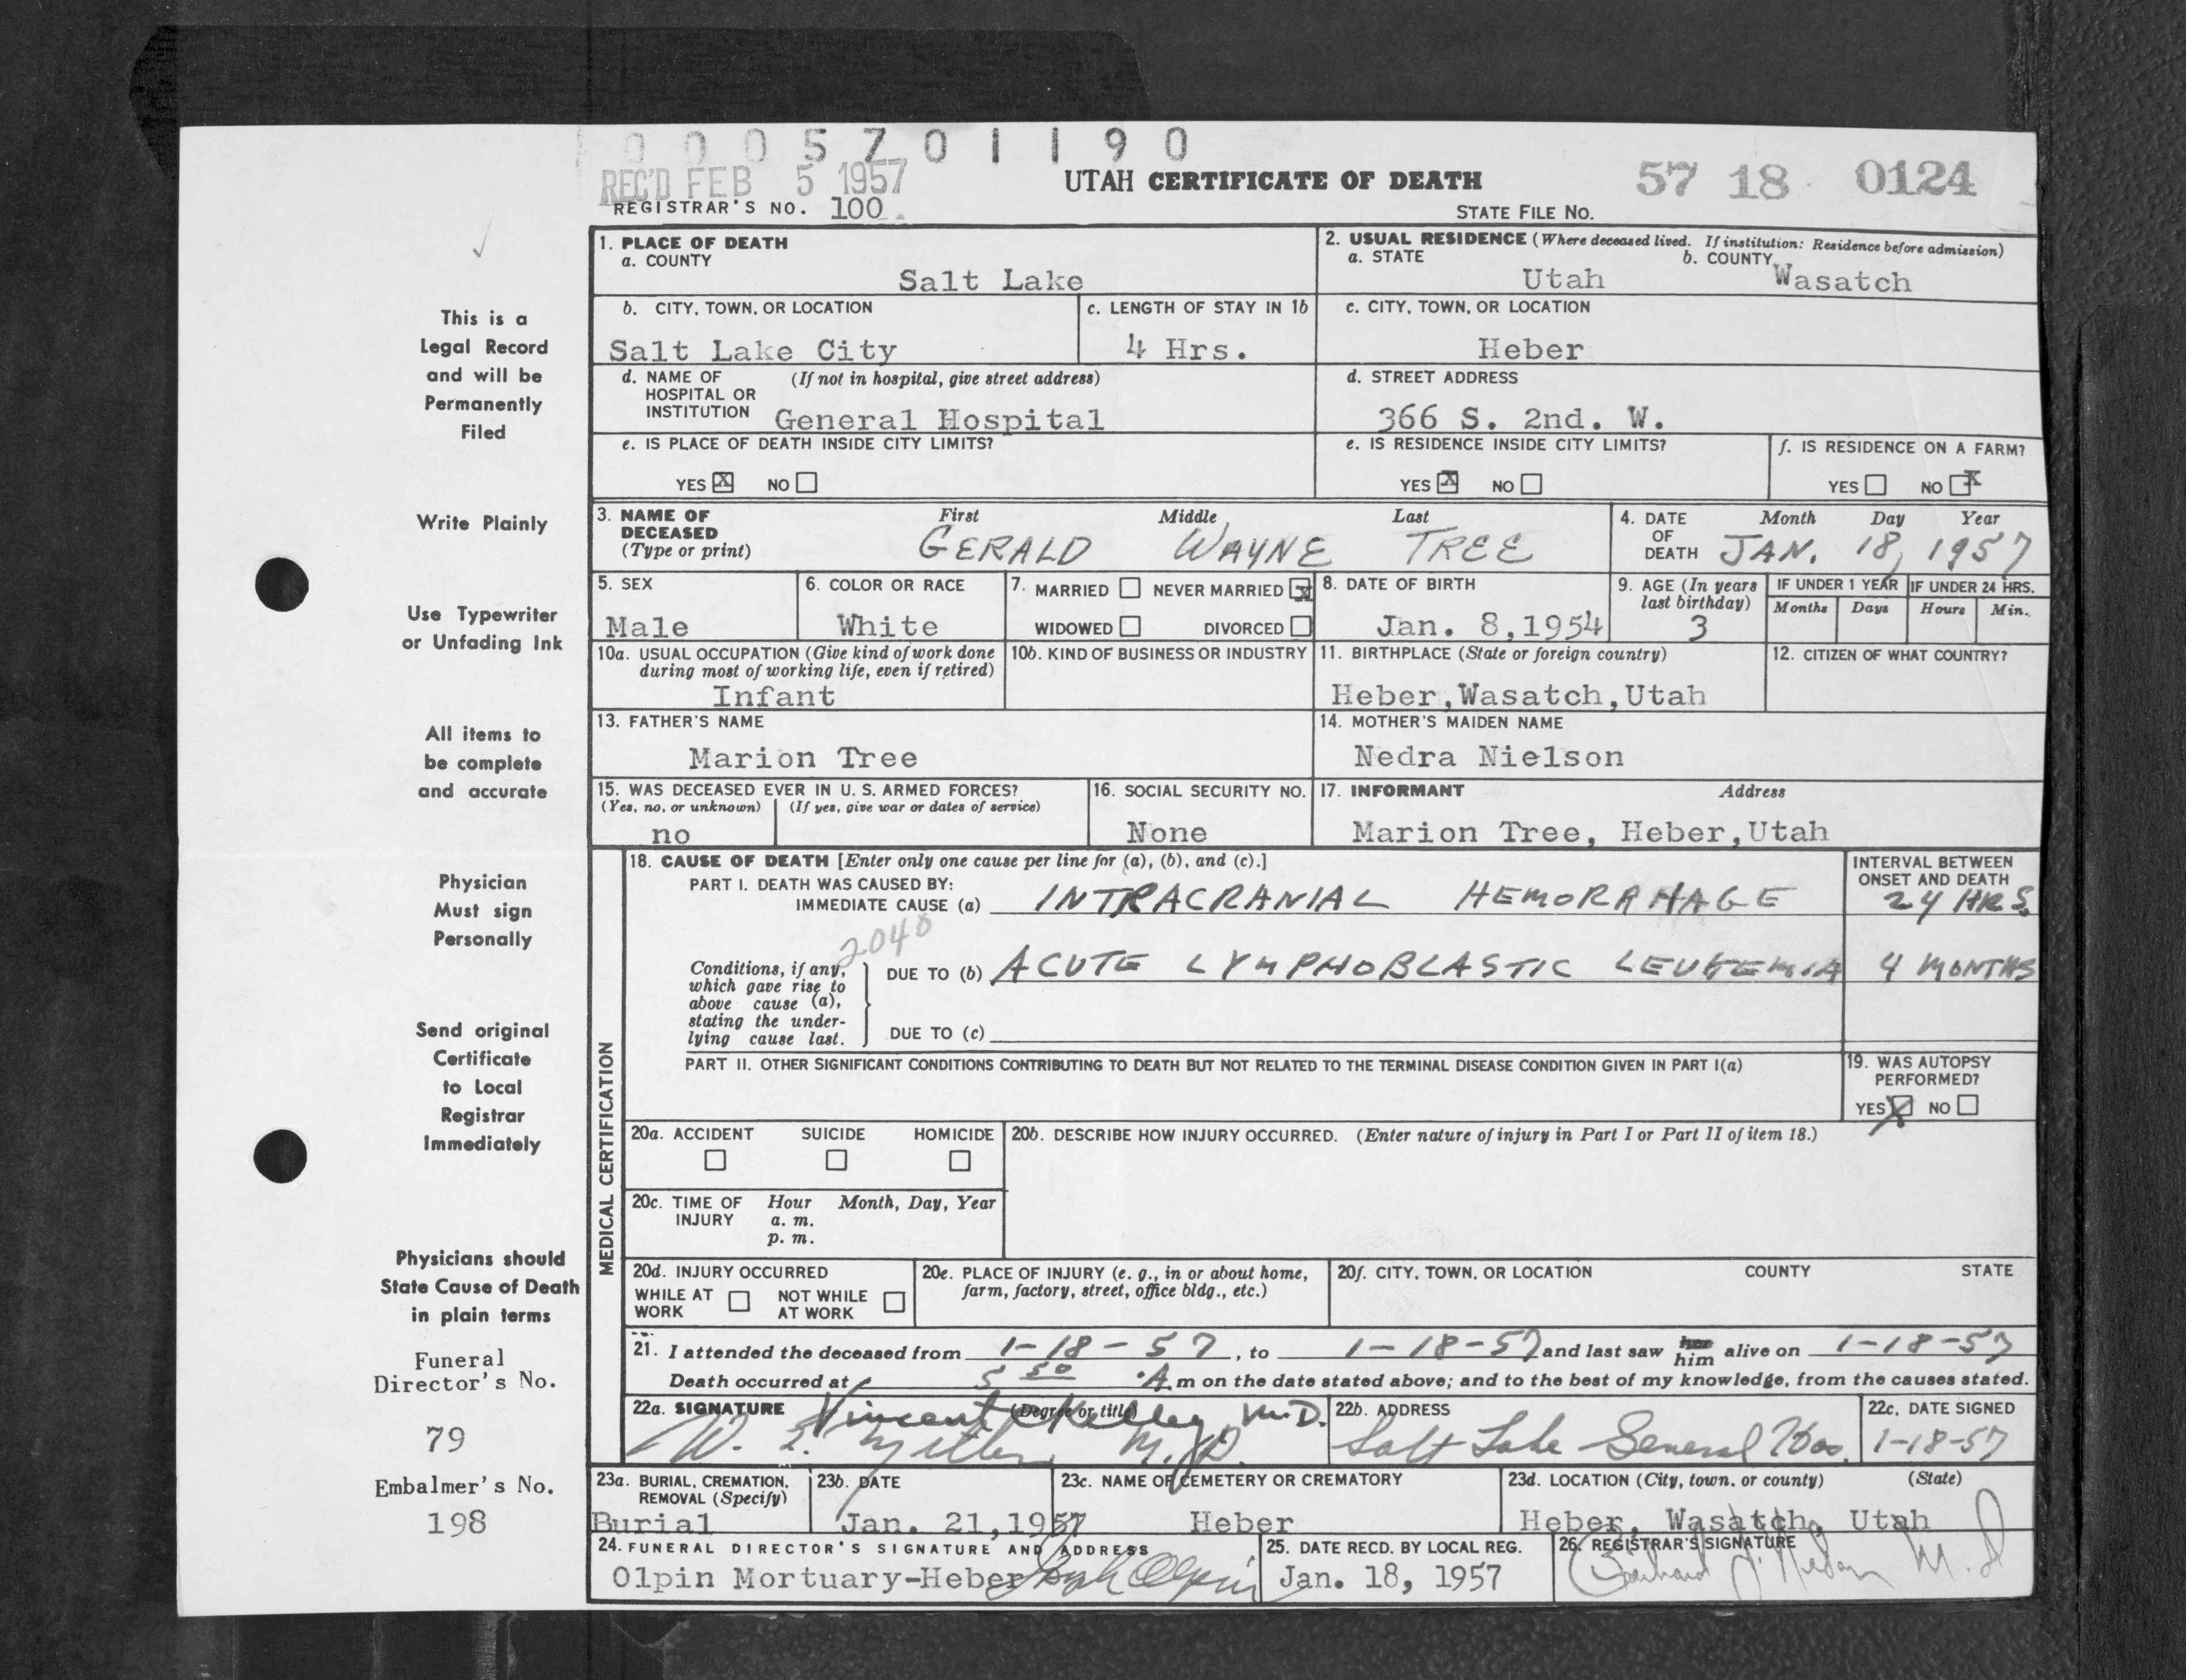 0005701190
REC'D FEB 5 1957
UTAH CERTIFICATE OF DEATH
57 18 0124
REGISTRAR'S NO. 100
STATE FILE NO.
This is a
Legal Record
and will be
Permanently
Filed
Write Plainly
Use Typewriter
or Unfading Ink
All items to
be complete
and accurate
Physician
Must sign
Personally
Send original
Certificate
to Local
Registrar
Immediately
Physicians should
State Cause of Death
in plain terms
Funeral
Director's No.
79
Embalmer's No.
198
1. PLACE OF DEATH
a. COUNTY
Salt Lake
2. USUAL RESIDENCE (Where deceased lived. If institution: Residence before admission)
a. STATE b. COUNTY
Utah Wasatch
b. CITY, TOWN, OR LOCATION
Salt Lake City
c. LENGTH OF STAY IN 1b
4 Hrs.
c. CITY, TOWN, OR LOCATION
Heber
d. NAME OF (If not in hospital, give street address)
HOSPITAL OR
INSTITUTION General Hospital
d. STREET ADDRESS
366 S. 2nd. W.
e. IS PLACE OF DEATH INSIDE CITY LIMITS?
YES X NO
e. IS RESIDENCE INSIDE CITY LIMITS?
YES X NO
f. IS RESIDENCE ON A FARM?
YES NO X
3. NAME OF First Middle Last
DECEASED
(Type or print) GERALD WAYNE TREE
4. DATE Month Day Year
OF
DEATH JAN. 18, 1957
5. SEX
Male
6. COLOR OR RACE
White
7. MARRIED NEVER MARRIED X
WIDOWED DIVORCED
8. DATE OF BIRTH
Jan. 8, 1954
9. AGE (In years
last birthday)
3
IF UNDER 1 YEAR
Months Days
IF UNDER 24 HRS.
Hours Min.
10a. USUAL OCCUPATION (Give kind of work done
during most of working life, even if retired)
Infant
10b. KIND OF BUSINESS OR INDUSTRY
11. BIRTHPLACE (State or foreign country)
Heber, Wasatch, Utah
12. CITIZEN OF WHAT COUNTRY?
13. FATHER'S NAME
Marion Tree
14. MOTHER'S MAIDEN NAME
Nedra Nielson
15. WAS DECEASED EVER IN U. S. ARMED FORCES?
(Yes, no, or unknown) (If yes, give war or dates of service)
no
16. SOCIAL SECURITY NO.
None
17. INFORMANT Address
Marion Tree, Heber, Utah
MEDICAL CERTIFICATION
18. CAUSE OF DEATH [Enter only one cause per line for (a), (b), and (c).]
PART I. DEATH WAS CAUSED BY:
IMMEDIATE CAUSE (a) INTRACRANIAL HEMORRHAGE
INTERVAL BETWEEN
ONSET AND DEATH
24 HRS.
2040
Conditions, if any,
which gave rise to
above cause (a),
stating the under-
lying cause last.
DUE TO (b) ACUTE LYMPHOBLASTIC LEUKEMIA 4 MONTHS
DUE TO (c)
PART II. OTHER SIGNIFICANT CONDITIONS CONTRIBUTING TO DEATH BUT NOT RELATED TO THE TERMINAL DISEASE CONDITION GIVEN IN PART I(a)
19. WAS AUTOPSY
PERFORMED?
YES X NO
20a. ACCIDENT SUICIDE HOMICIDE
20b. DESCRIBE HOW INJURY OCCURRED. (Enter nature of injury in Part I or Part II of item 18.)
20c. TIME OF Hour Month, Day, Year
INJURY a. m.
p. m.
20d. INJURY OCCURRED
WHILE AT NOT WHILE
WORK AT WORK
20e. PLACE OF INJURY (e. g., in or about home,
farm, factory, street, office bldg., etc.)
20f. CITY, TOWN, OR LOCATION COUNTY STATE
21. I attended the deceased from 1-18-57, to 1-18-57 and last saw her him alive on 1-18-57
Death occurred at 5 50 A. m on the date stated above; and to the best of my knowledge, from the causes stated.
22a. SIGNATURE (Degree or title)
Vincent Kelley M.D.
W. E. M.D.
22b. ADDRESS
Salt Lake General Hos.
22c. DATE SIGNED
1-18-57
23a. BURIAL, CREMATION,
REMOVAL (Specify)
Burial
23b. DATE
Jan. 21, 1957
23c. NAME OF CEMETERY OR CREMATORY
Heber
23d. LOCATION (City, town, or county) (State)
Heber, Wasatch, Utah
24. FUNERAL DIRECTOR'S SIGNATURE AND ADDRESS
Olpin Mortuary-Heber Olpin
25. DATE RECD. BY LOCAL REG.
Jan. 18, 1957
26. REGISTRAR'S SIGNATURE
M.D